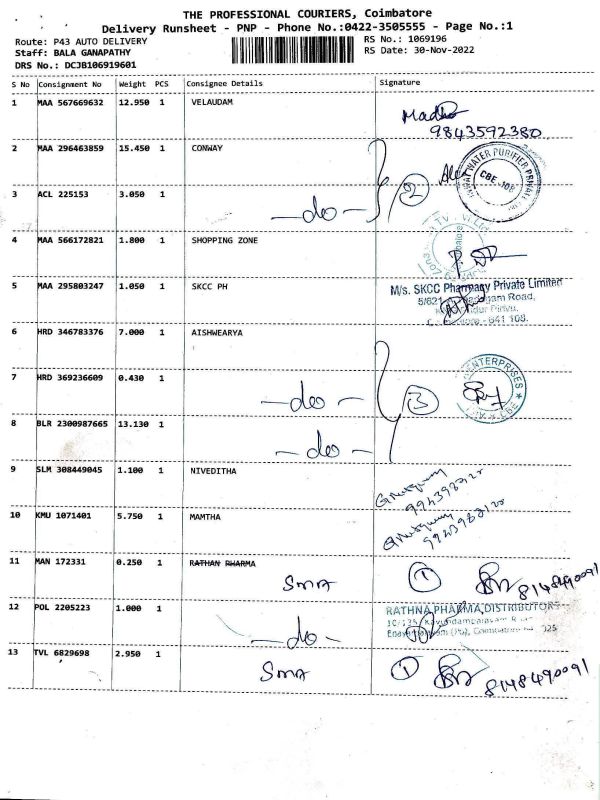 THE PROFESSIONAL COURIERS, Coimbatore
Delivery Runsheet - PNP - Phone No.:0422-3505555 - Page No.:1
Route: P43 AUTO DELIVERY RS No.: 1069196
Staff: BALA GANAPATHY RS Date: 30-Nov-2022
DRS No.: DCJB106919601
S No Consignment No Weight PCS Consignee Details Signature
1 MAA 567669632 12.950 1 VELAUDAM
9843592380
2 MAA 296463859 15.450 1 CONWAY
WATER PURIFIER
CBE-108
2
3 ACL 225153 3.050 1 -do-
4 MAA 566172821 1.800 1 SHOPPING ZONE
5 MAA 295803247 1.050 1 SKCC PH M/s. SKCC Pharmacy Private Limited
Road,
641 108.
6 HRD 346783376 7.000 1 AISHWEARYA
ENTERPRISES
CBE
7 HRD 369236609 0.430 1 -do- 3
8 BLR 2300987665 13.130 1 -do-
9 SLM 308449045 1.100 1 NIVEDITHA
10 KMU 1071401 5.750 1 MAMTHA
11 MAN 172331 0.250 1 RATHAN PHARMA
SMA 1 8148490091
12 POL 2205223 1.000 1 -do- RATHNA PHARMA DISTRIBUTORS
13 TVL 6829698 2.950 1 SMA 1 8148490091